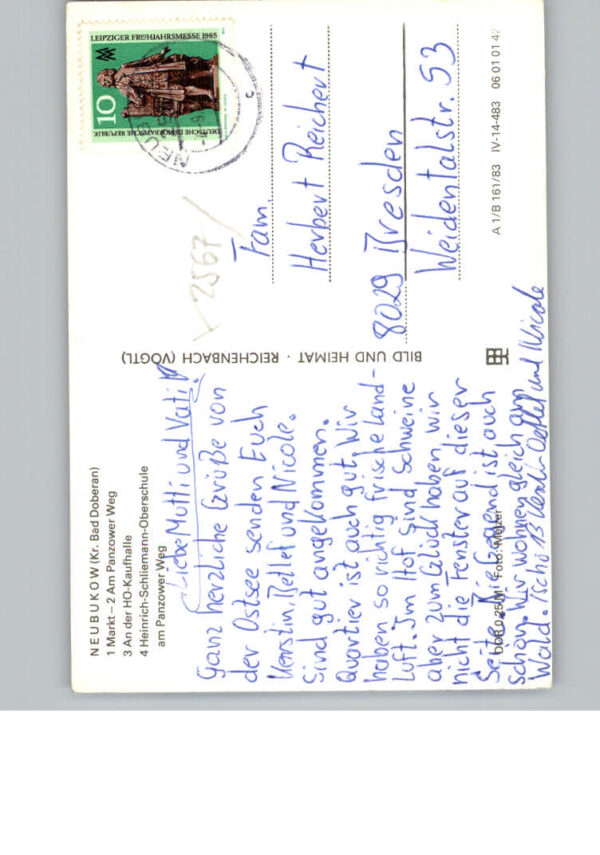 NEUBUKOW (Kr. Bad Doberan)
1 Markt – 2 Am Panzower Weg
3 An der HO-Kaufhalle
4 Heinrich-Schliemann-Oberschule
am Panzower Weg
Liebe Mutti und Vati!
Ganz herzliche Grüße von
der Ostsee senden Euch
Kerstin, Detlef und Nicole.
Sind gut angekommen.
Quartier ist auch gut. Wir
haben so richtig frische Land-
luft. Im Hof sind Schweine
aber zum Glück haben wir
nicht die Fenster auf dieser
Seite. Die Gegend ist auch
schön. Wir wohnen gleich am
Wald. Tschüß Kerstin Detlef und Nicole
DDR 0,25 M Foto: Melzer
BILD UND HEIMAT · REICHENBACH (VOGTL)
LEIPZIGER FRÜHJAHRSMESSE 1985
10
DEUTSCHE DEMOKRATISCHE REPUBLIK
2567
Fam.
Herbert Reichert
8029 Dresden
Weidentalstr. 53
A 1/B 161/83 IV-14-483 06 01 01 42